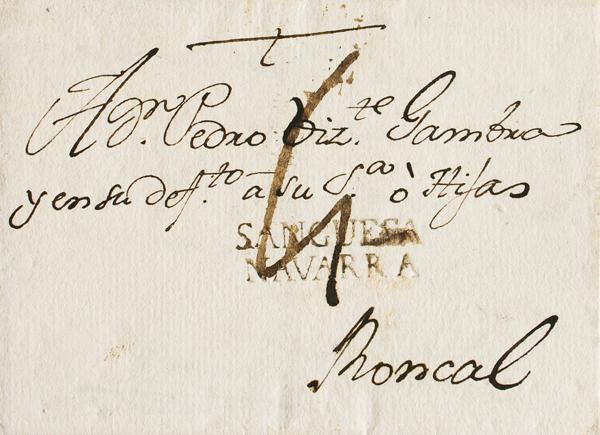 A Dn. Pedro Viz.te Gambra
y en su def.to a su S.a o Hijas
SANGUESA
NAVARRA
Roncal